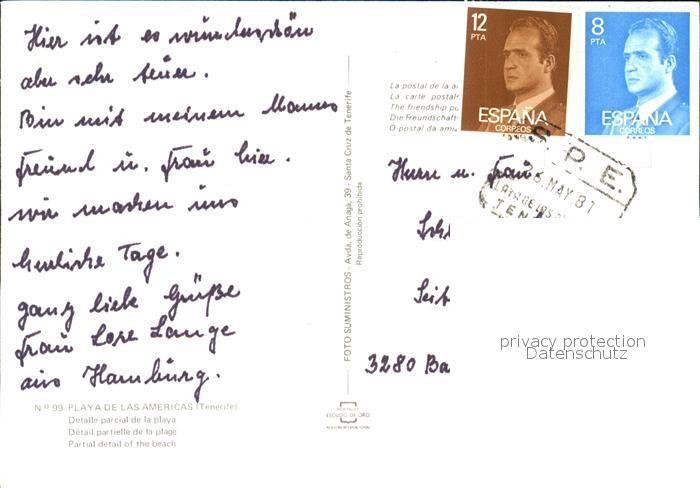 Hier ist es wunderschön
aber sehr teuer.
Bin mit meinem Mannes
Freund u. Frau hier.
wir machen uns
herrliche Tage.
ganz liebe Grüße
Frau Lore Lange
aus Hamburg.
Nº 99 PLAYA DE LAS AMERICAS (Tenerife)
Detalle parcial de la playa
Détail partielle de la plage
Partial detail of the beach
FOTO SUMINISTROS - Avda. de Anaga, 39 - Santa Cruz de Tenerife
Reproducción prohibida
ESCUDO DE ORO
La postal de la a
La carte postale
The friendship po
Die Freundschaft
O postal da ami
12 PTA
ESPAÑA
CORREOS
8 PTA
ESPAÑA
CORREOS
S.P.E.
MAY 81
Herrn u. Frau
Sch
Seit
3280 Ba
privacy protection
Datenschutz